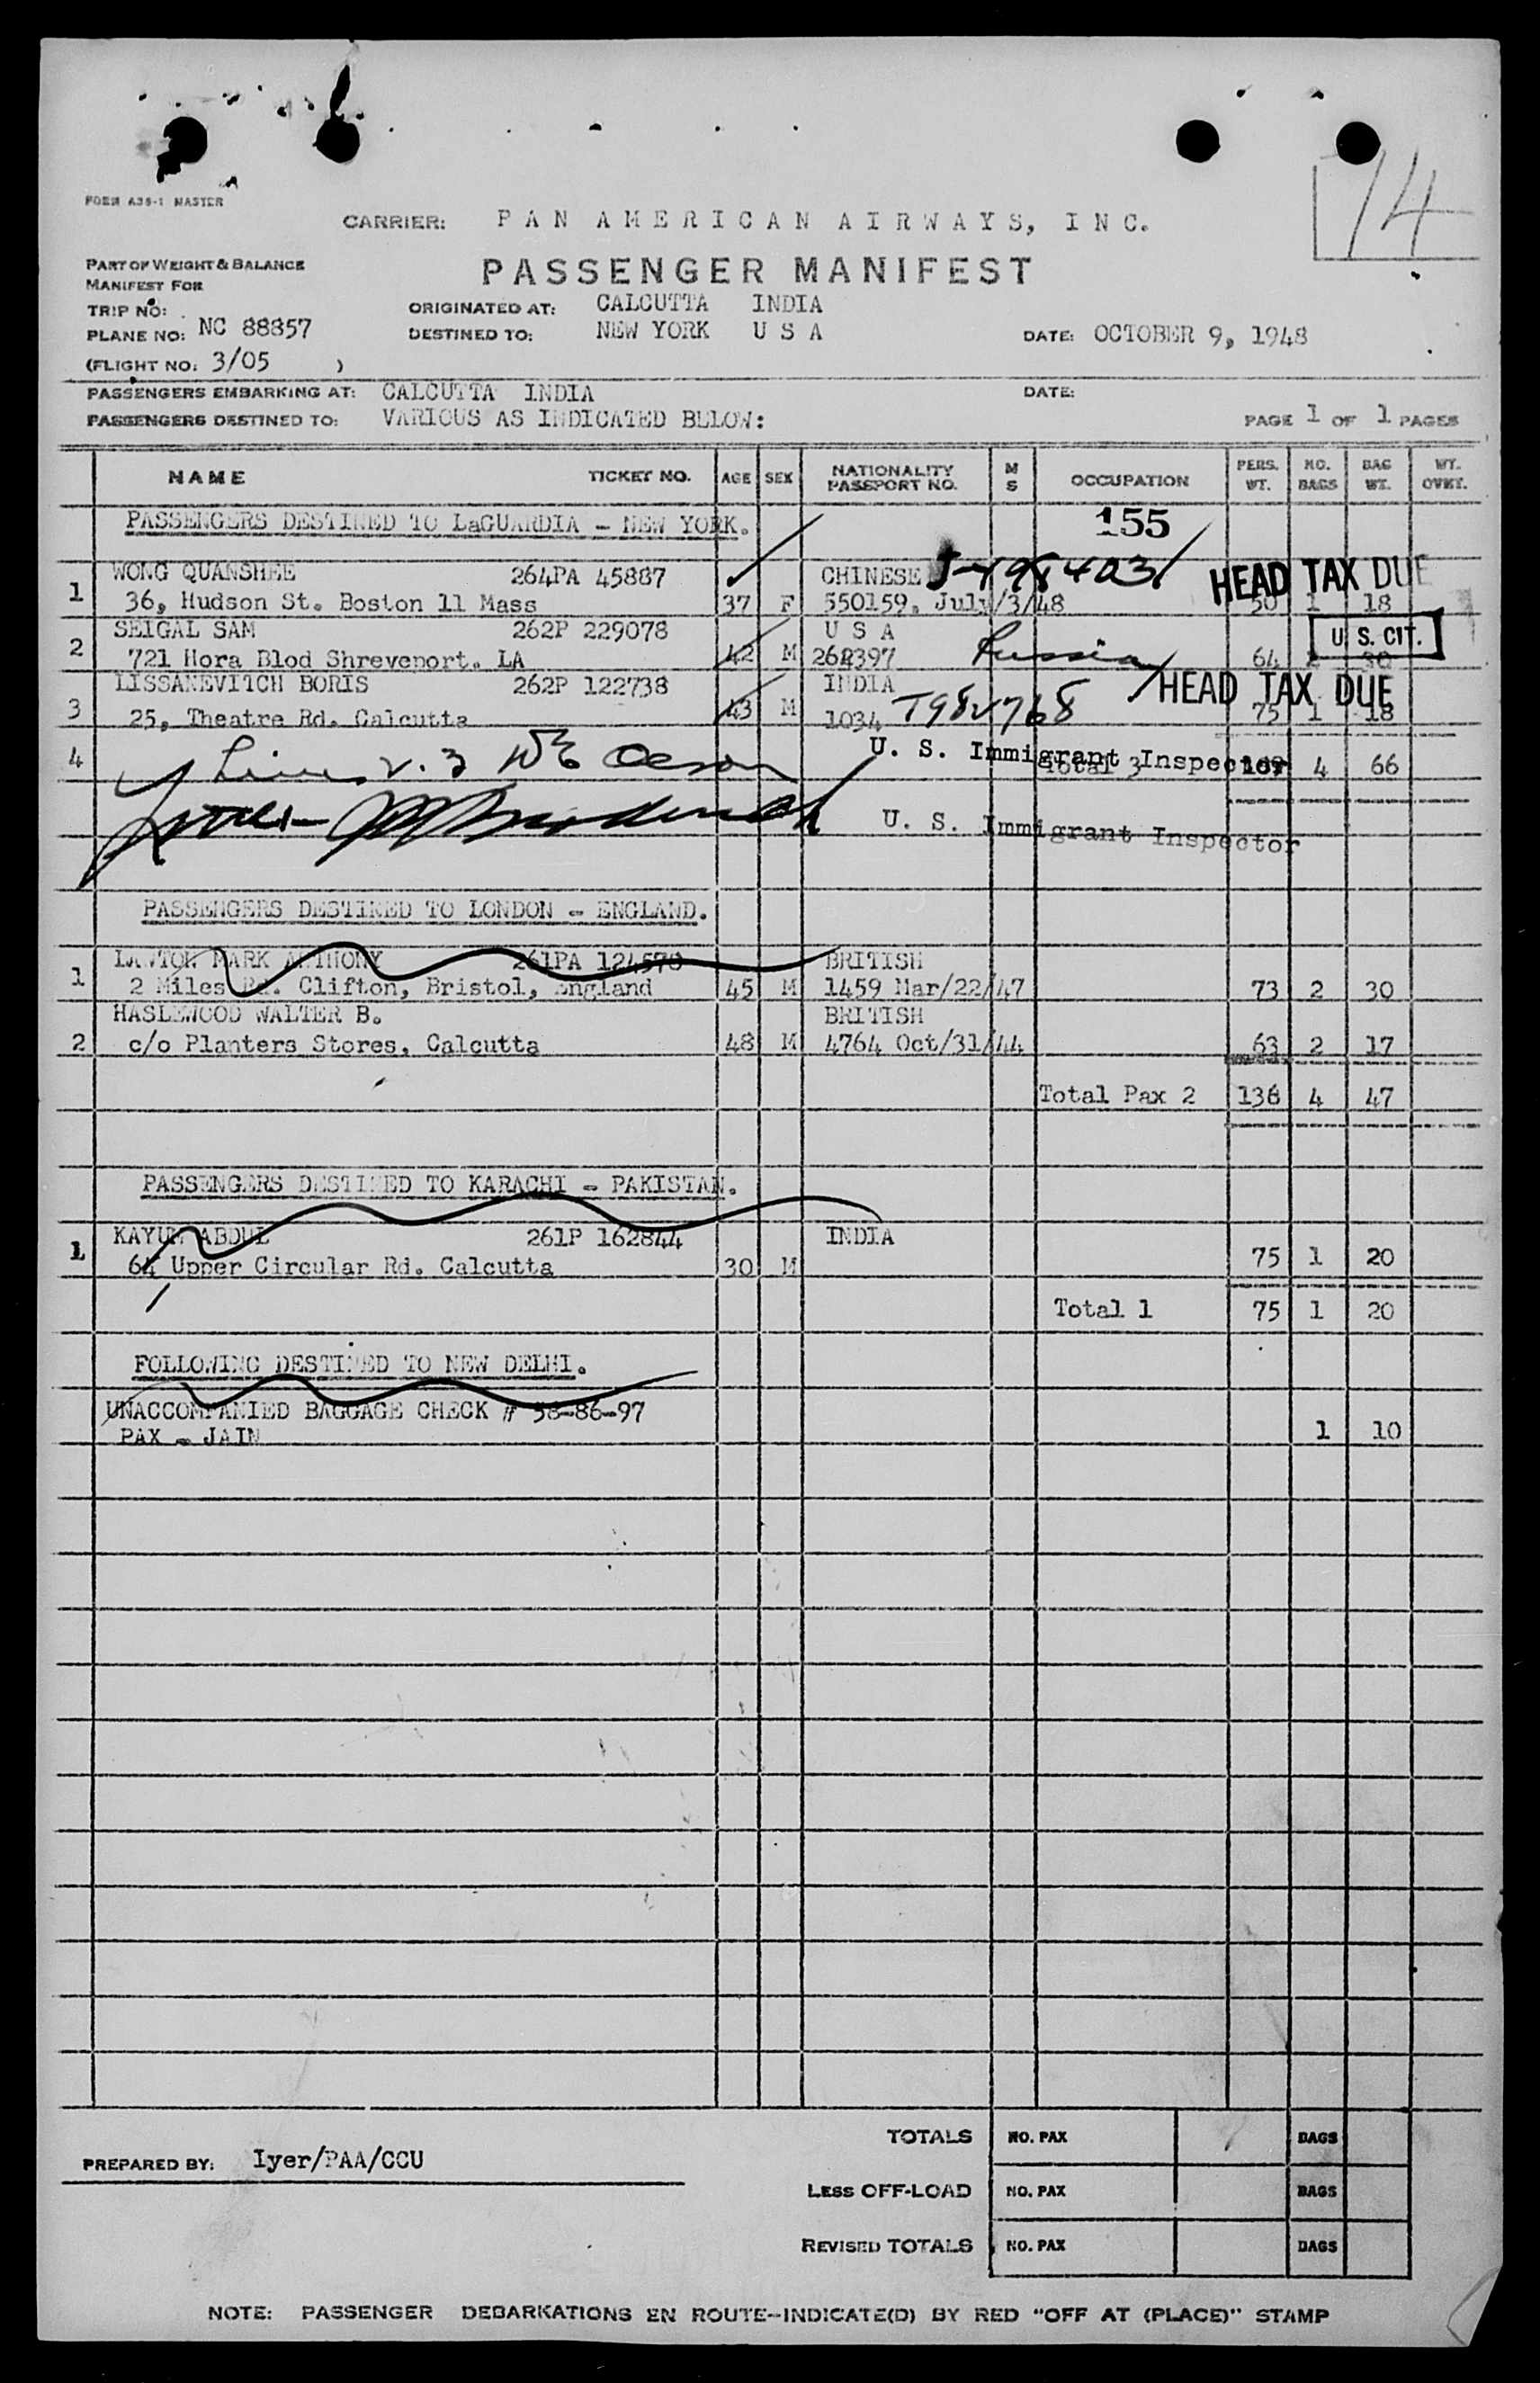 74
FORM A36-1 MASTER
CARRIER: PAN AMERICAN AIRWAYS, INC.
PART OF WEIGHT & BALANCE
MANIFEST FOR
PASSENGER MANIFEST
TRIP NO:
ORIGINATED AT: CALCUTTA INDIA
PLANE NO: NC 88857
DESTINED TO: NEW YORK U S A
DATE: OCTOBER 9, 1948
(FLIGHT NO: 3/05 )
PASSENGERS EMBARKING AT: CALCUTTA INDIA
DATE:
PASSENGERS DESTINED TO: VARIOUS AS INDICATED BELOW:
PAGE 1 OF 1 PAGES
NAME TICKET NO. AGE SEX NATIONALITY PASSPORT NO. M S OCCUPATION PERS. WT. NO. BAGS BAG WT. WT. OVWT.
PASSENGERS DESTINED TO LaGUARDIA - NEW YORK. 155
1 WONG QUANSHEE 264PA 45887 CHINESE HEAD TAX DUE
36, Hudson St. Boston 11 Mass 37 F 550159. July/3/48 50 1 18
2 SEIGAL SAM 262P 229078 U S A U S. CIT.
721 Hora Blod Shreveport. LA 42 M Russia 64
3 LISSANEVITCH BORIS 262P 122738 INDIA HEAD TAX DUE
25, Theatre Rd. Calcutta 43 M 1034 T982768 75 1 18
4 U. S. Immigrant Inspector
Total 3 4 66
U. S. Immigrant Inspector
PASSENGERS DESTINED TO LONDON - ENGLAND.
1 LAWTON MARK ANTHONY 261PA 124570 BRITISH
2 Miles Rd. Clifton, Bristol, England 45 M 1459 Mar/22/47 73 2 30
HASLEWOOD WALTER B. BRITISH
2 c/o Planters Stores, Calcutta 48 M 4764 Oct/31/44 63 2 17
Total Pax 2 136 4 47
PASSENGERS DESTINED TO KARACHI - PAKISTAN.
1 KAYUM ABDUL 261P 162844 INDIA
64 Upper Circular Rd. Calcutta 30 M 75 1 20
Total 1 75 1 20
FOLLOWING DESTINED TO NEW DELHI.
UNACCOMPANIED BAGGAGE CHECK # 58-86-97
PAX - JAIN 1 10
TOTALS NO. PAX BAGS
PREPARED BY: Iyer/PAA/CCU
LESS OFF-LOAD NO. PAX BAGS
REVISED TOTALS NO. PAX BAGS
NOTE: PASSENGER DEBARKATIONS EN ROUTE--INDICATE(D) BY RED "OFF AT (PLACE)" STAMP